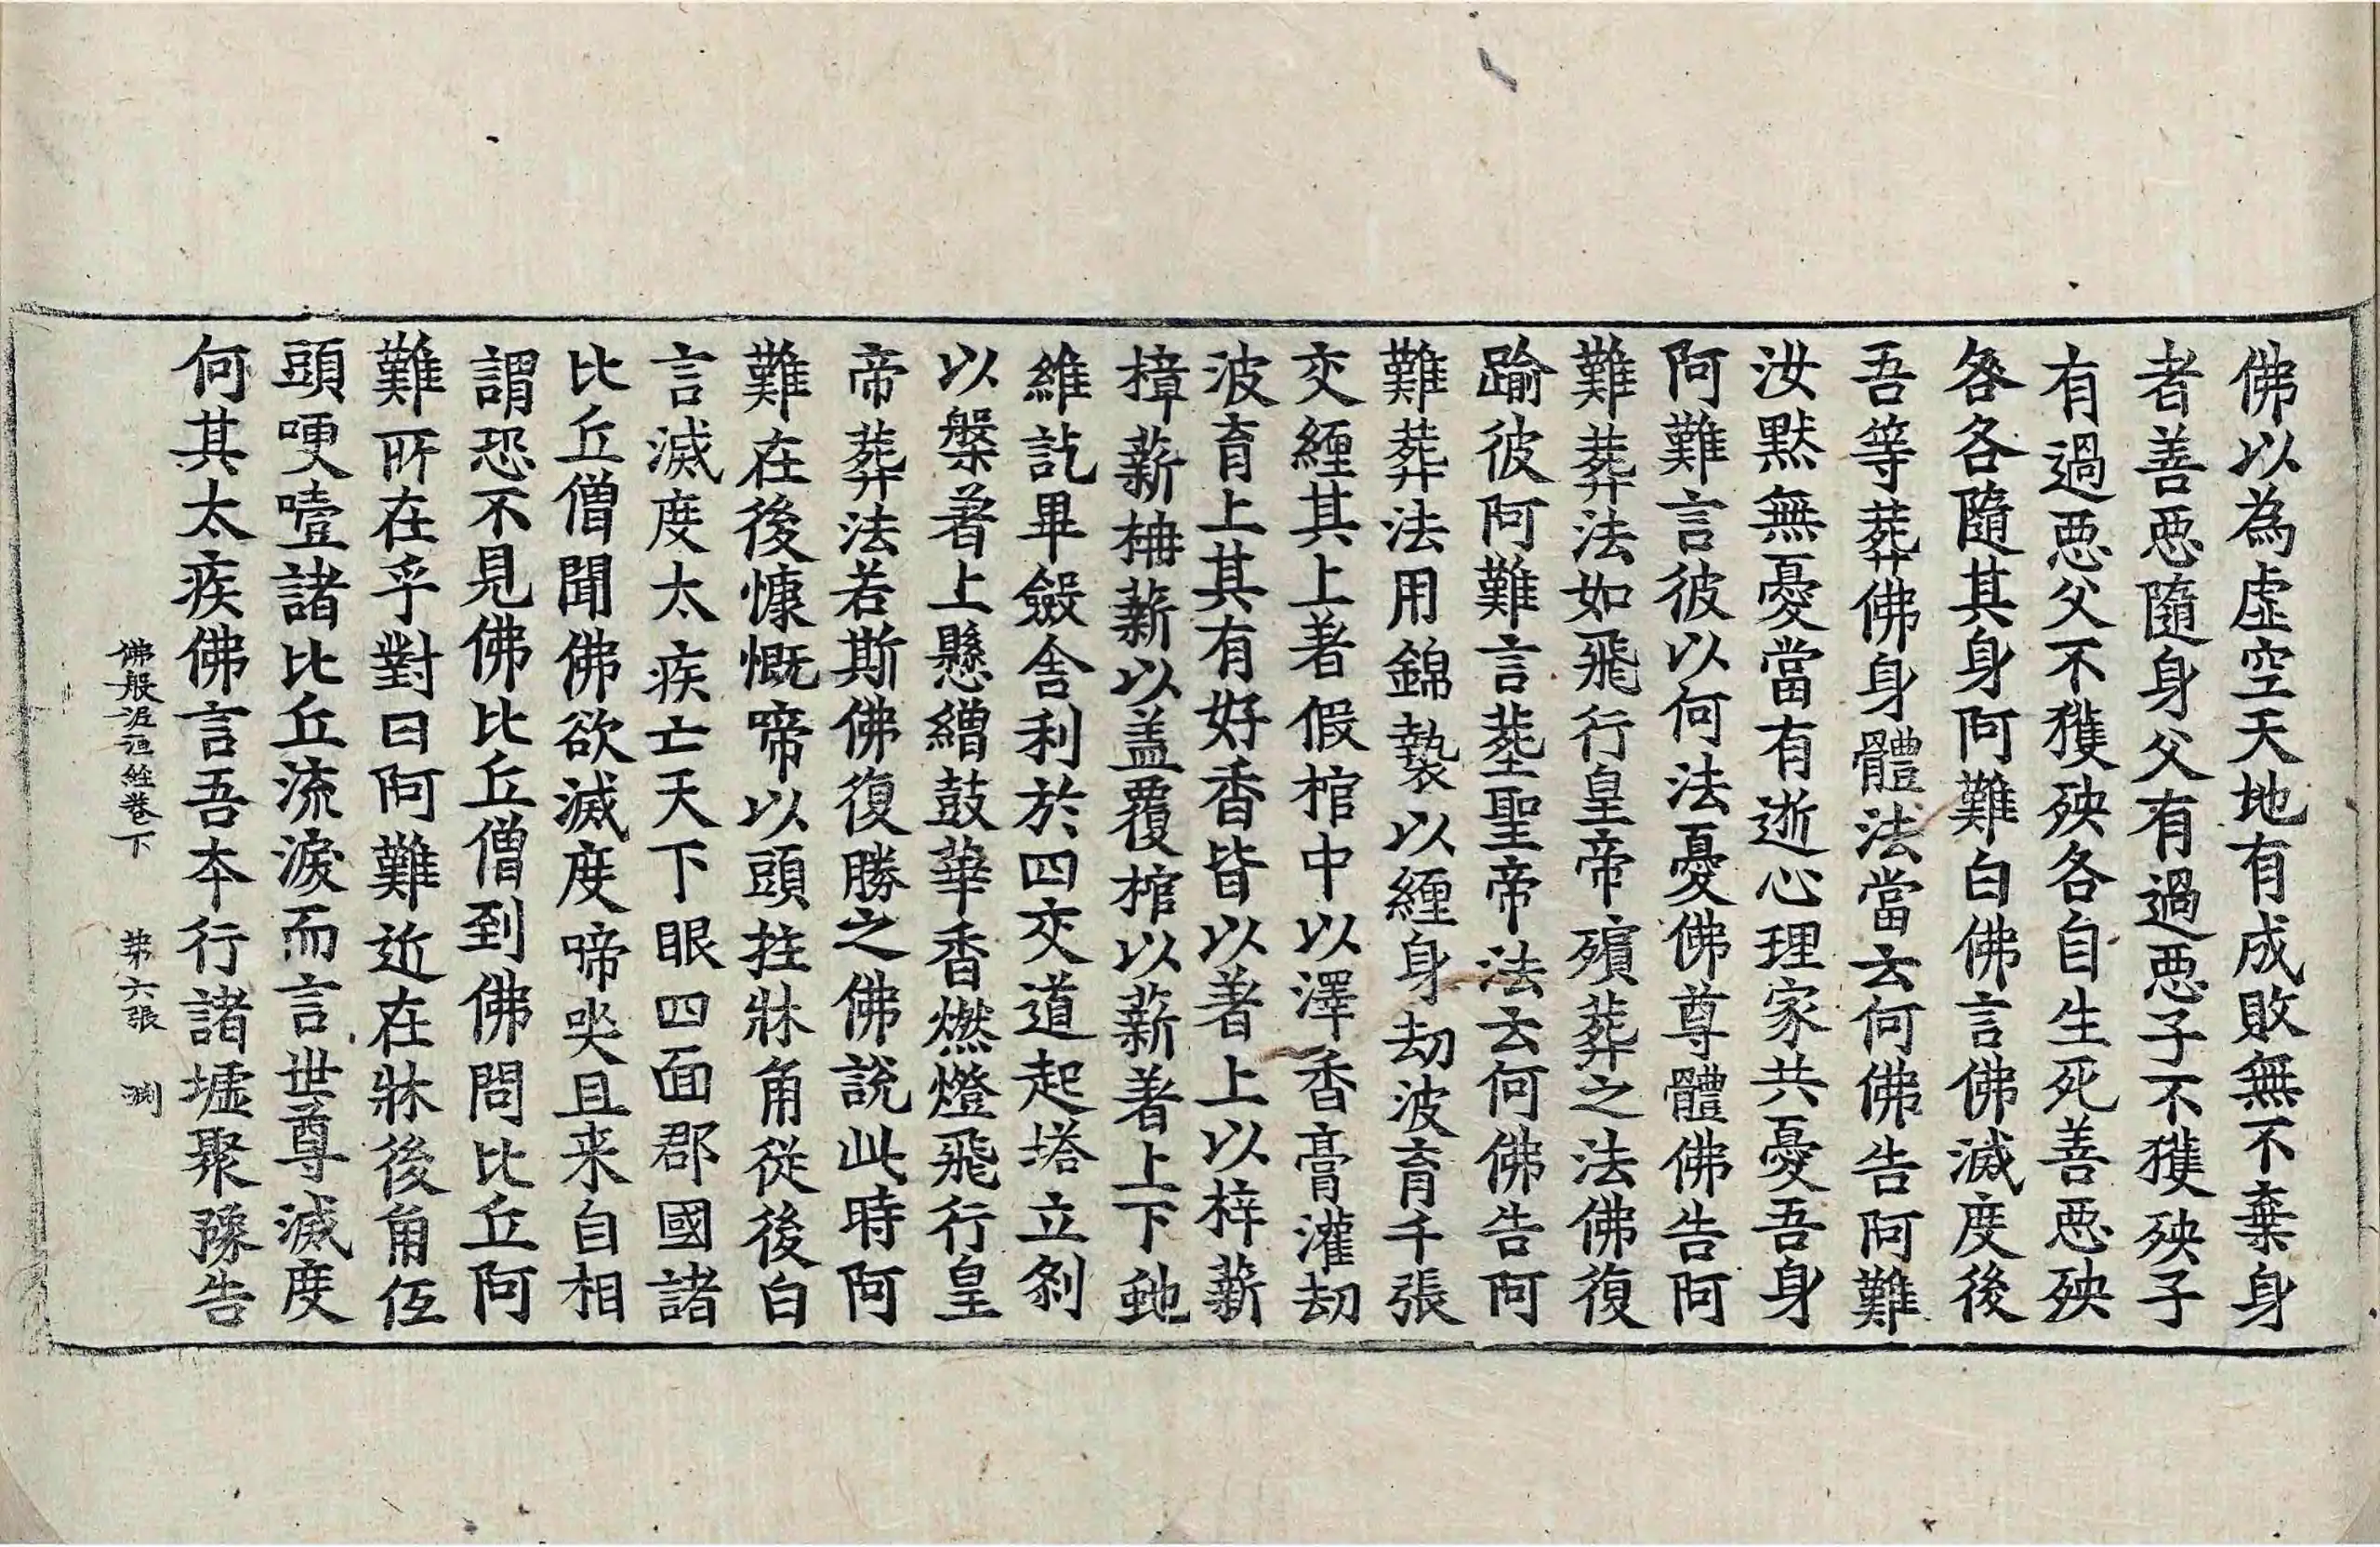 佛以為虛空天地有成敗無不棄身
者善惡隨身父有過惡子不獲殃子
有過惡父不獲殃各自生死善惡殃
咎各隨其身阿難白佛言佛滅度後
吾等葬佛身體法當云何佛告阿難
汝默無憂當有逝心理家共憂吾身
阿難言彼以何法憂佛尊體佛告阿
難葬法如飛行皇帝殯葬之法佛復
踰彼阿難言葬聖帝法云何佛告阿
難葬法用錦㲲以纏身劫波育千張
交纏其上著假棺中以澤香膏灌劫
波育上其有好香皆以著上以梓薪
樟薪栴薪以盖覆棺以薪著上下虵
維訖畢斂舍利於四交道起塔立剎
以槃著上懸繒鼓華香燃燈飛行皇
帝葬法若斯佛復勝之佛說此時阿
難在後慷慨啼以頭拄牀角從後白
言滅度太疾亡天下眼四面郡國諸
比丘僧聞佛欲滅度啼哭且来自相
謂恐不見佛比丘僧到佛問比丘阿
難所在乎對曰阿難近在牀後角仾
頭哽噎諸比丘流淚而言世尊滅度
何其太疾佛言吾本行諸墟聚豫告
佛般泥洹經卷下 第六張